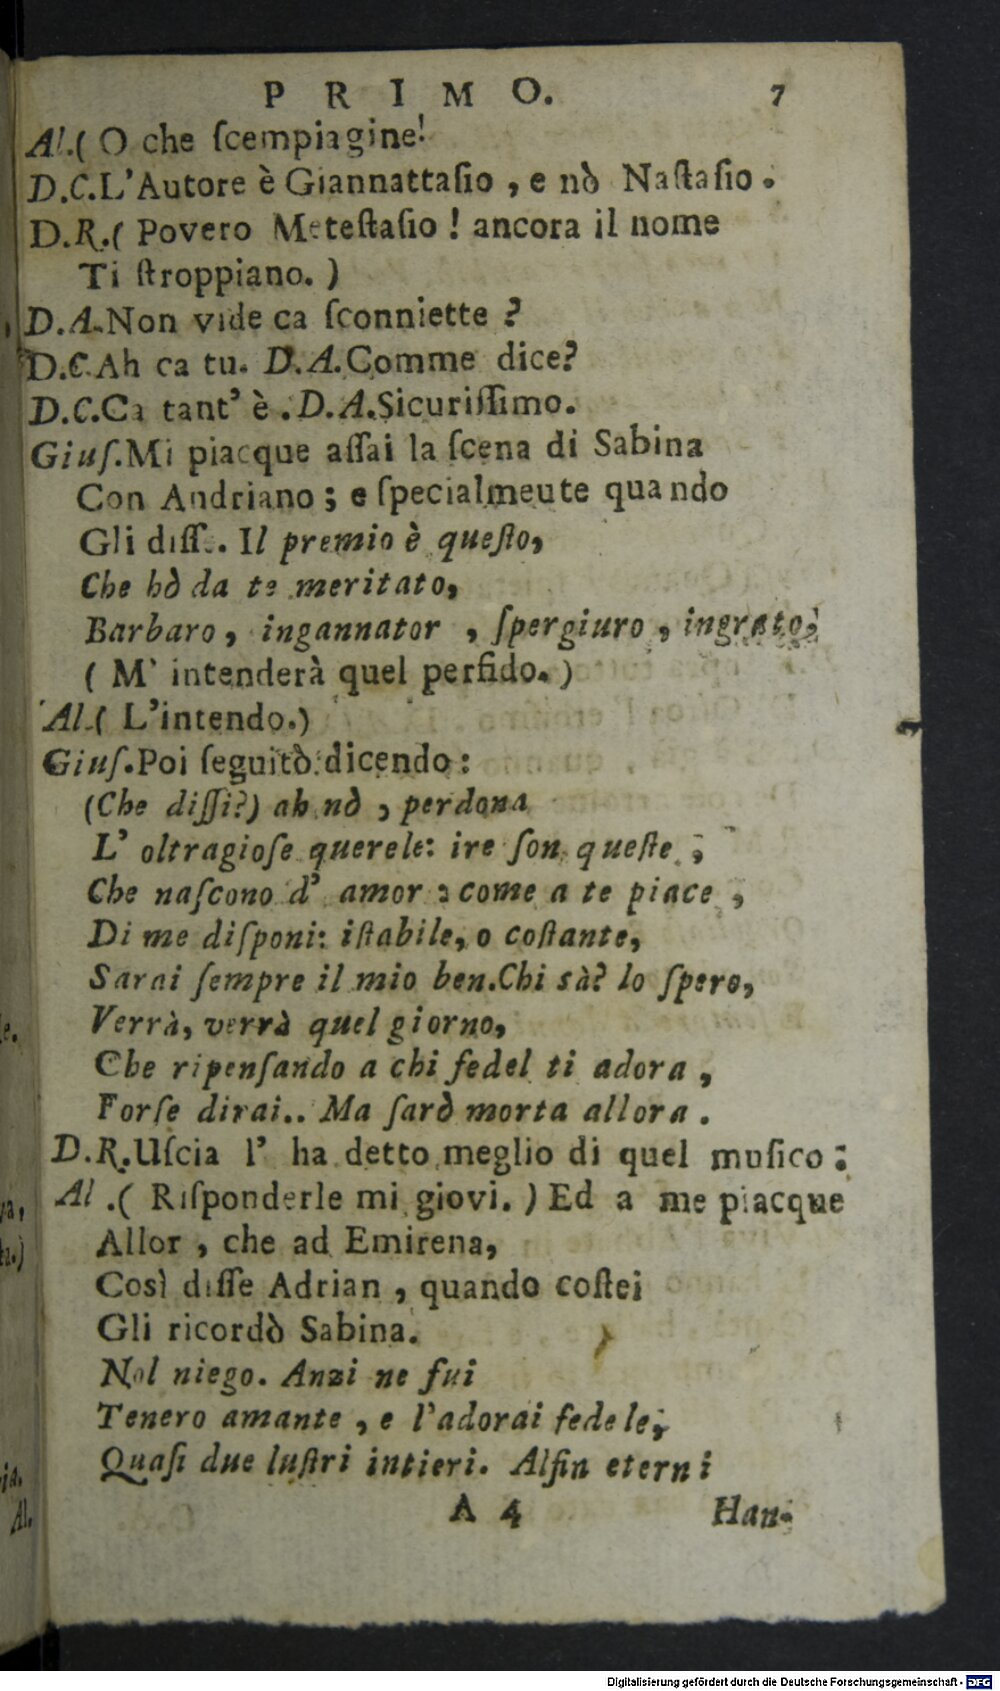 PRIMO. 7
Al.( O che ſcempiagine!
D.C.L'Autore è Giannattaſio , e nò Naſtaſio .
D.R.( Povero Meteſtaſio ! ancora il nome
Ti ſtroppiano. )
D.A.Non vide ca ſconniette ?
D.C.Ah ca tu. D.A.Comme dice?
D.C.Ca tant' è .D.A.Sicuriſſimo.
Giuſ.Mi piacque aſſai la ſcena di Sabina
Con Andriano ; e ſpecialmeute quando
Gli diſſe.. Il premio è queſto,
Che hò da te meritato,
Barbaro , ingannator , ſpergiuro , ingrato;
( M' intenderà quel perfido. )
Al.( L'intendo.)
Giuſ.Poi ſeguitò dicendo :
(Che diſſi?) ah nò , perdona
L' oltragioſe querele: ire ſon queſte ;
Che naſcono d' amor : come a te piace ,
Di me diſponi: iſtabile, o coſtante,
Sarai ſempre il mio ben.Chi sà? lo ſpero,
Verrà, verrà quel giorno,
Che ripenſando a chi fedel ti adora ,
Forſe dirai.. Ma ſarò morta allora .
D.R.Uſcia l' ha detto meglio di quel muſico :
Al .( Riſponderle mi giovi. ) Ed a me piacque
Allor , che ad Emirena,
Così diſſe Adrian , quando coſtei
Gli ricordò Sabina.
Nol niego. Anzi ne fui
Tenero amante , e l'adorai fedele,
Quaſi due luſtri intieri. Alfin eterni
A 4 Han-
le.
va,
ia.
Al.
Digitalisierung gefördert durch die Deutsche Forschungsgemeinschaft - DFG